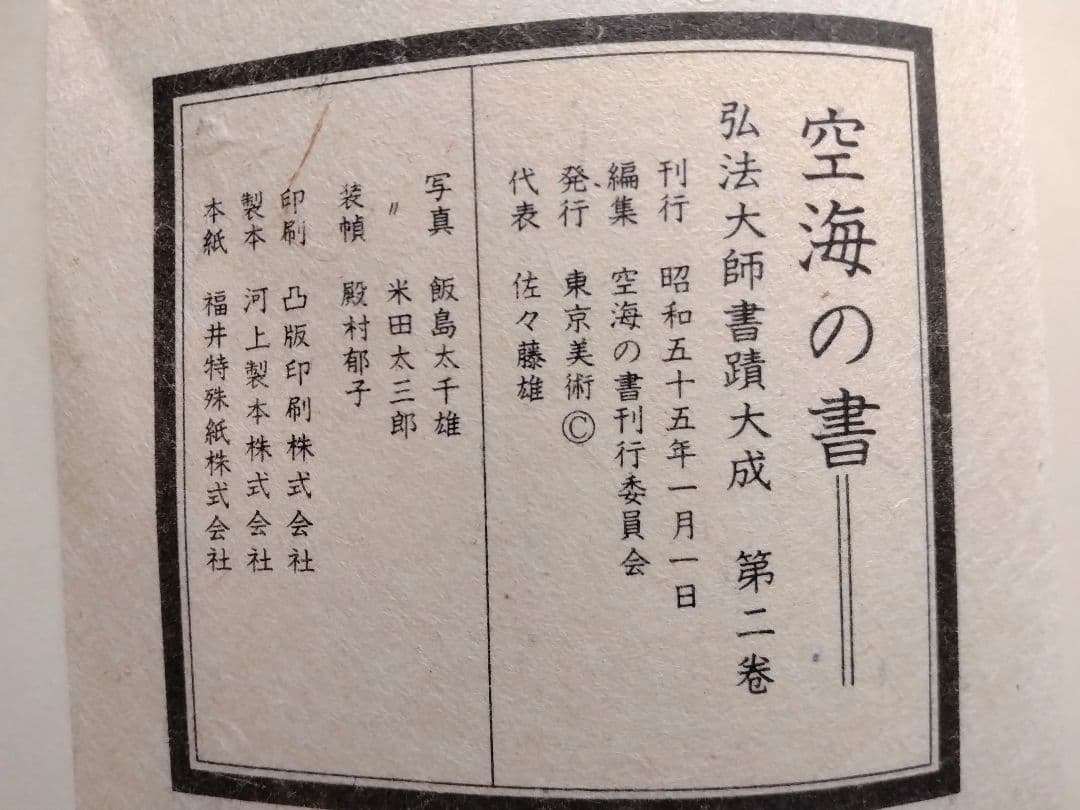 空海の書
弘法大師書蹟大成　第二巻
刊行　昭和五十五年一月一日
編集　空海の書刊行委員会
発行　東京美術©
代表　佐々藤雄
写真　飯島太千雄
〃　米田太三郎
装幀　殿村郁子
印刷　凸版印刷株式会社
製本　河上製本株式会社
本紙　福井特殊紙株式会社